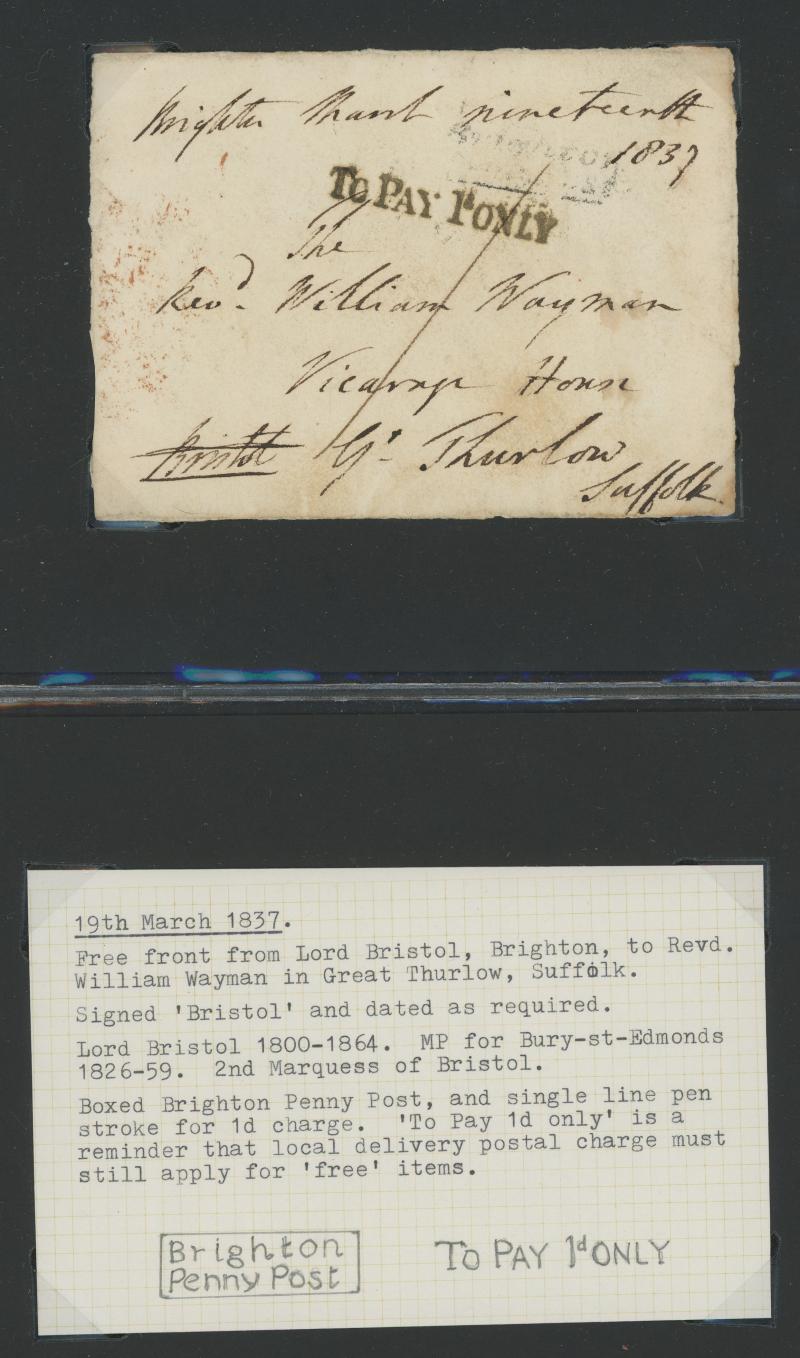 Brighton March nineteenth
1837
To PAY 1d ONLY
The
Revd. William Wayman
Vicarage House
Bristol Gt. Thurlow
Suffolk
19th March 1837.
Free front from Lord Bristol, Brighton, to Revd.
William Wayman in Great Thurlow, Suffolk.
Signed 'Bristol' and dated as required.
Lord Bristol 1800-1864.  MP for Bury-st-Edmonds
1826-59.  2nd Marquess of Bristol.
Boxed Brighton Penny Post, and single line pen
stroke for 1d charge.  'To Pay 1d only' is a
reminder that local delivery postal charge must
still apply for 'free' items.
Brighton
Penny Post
To PAY 1d ONLY